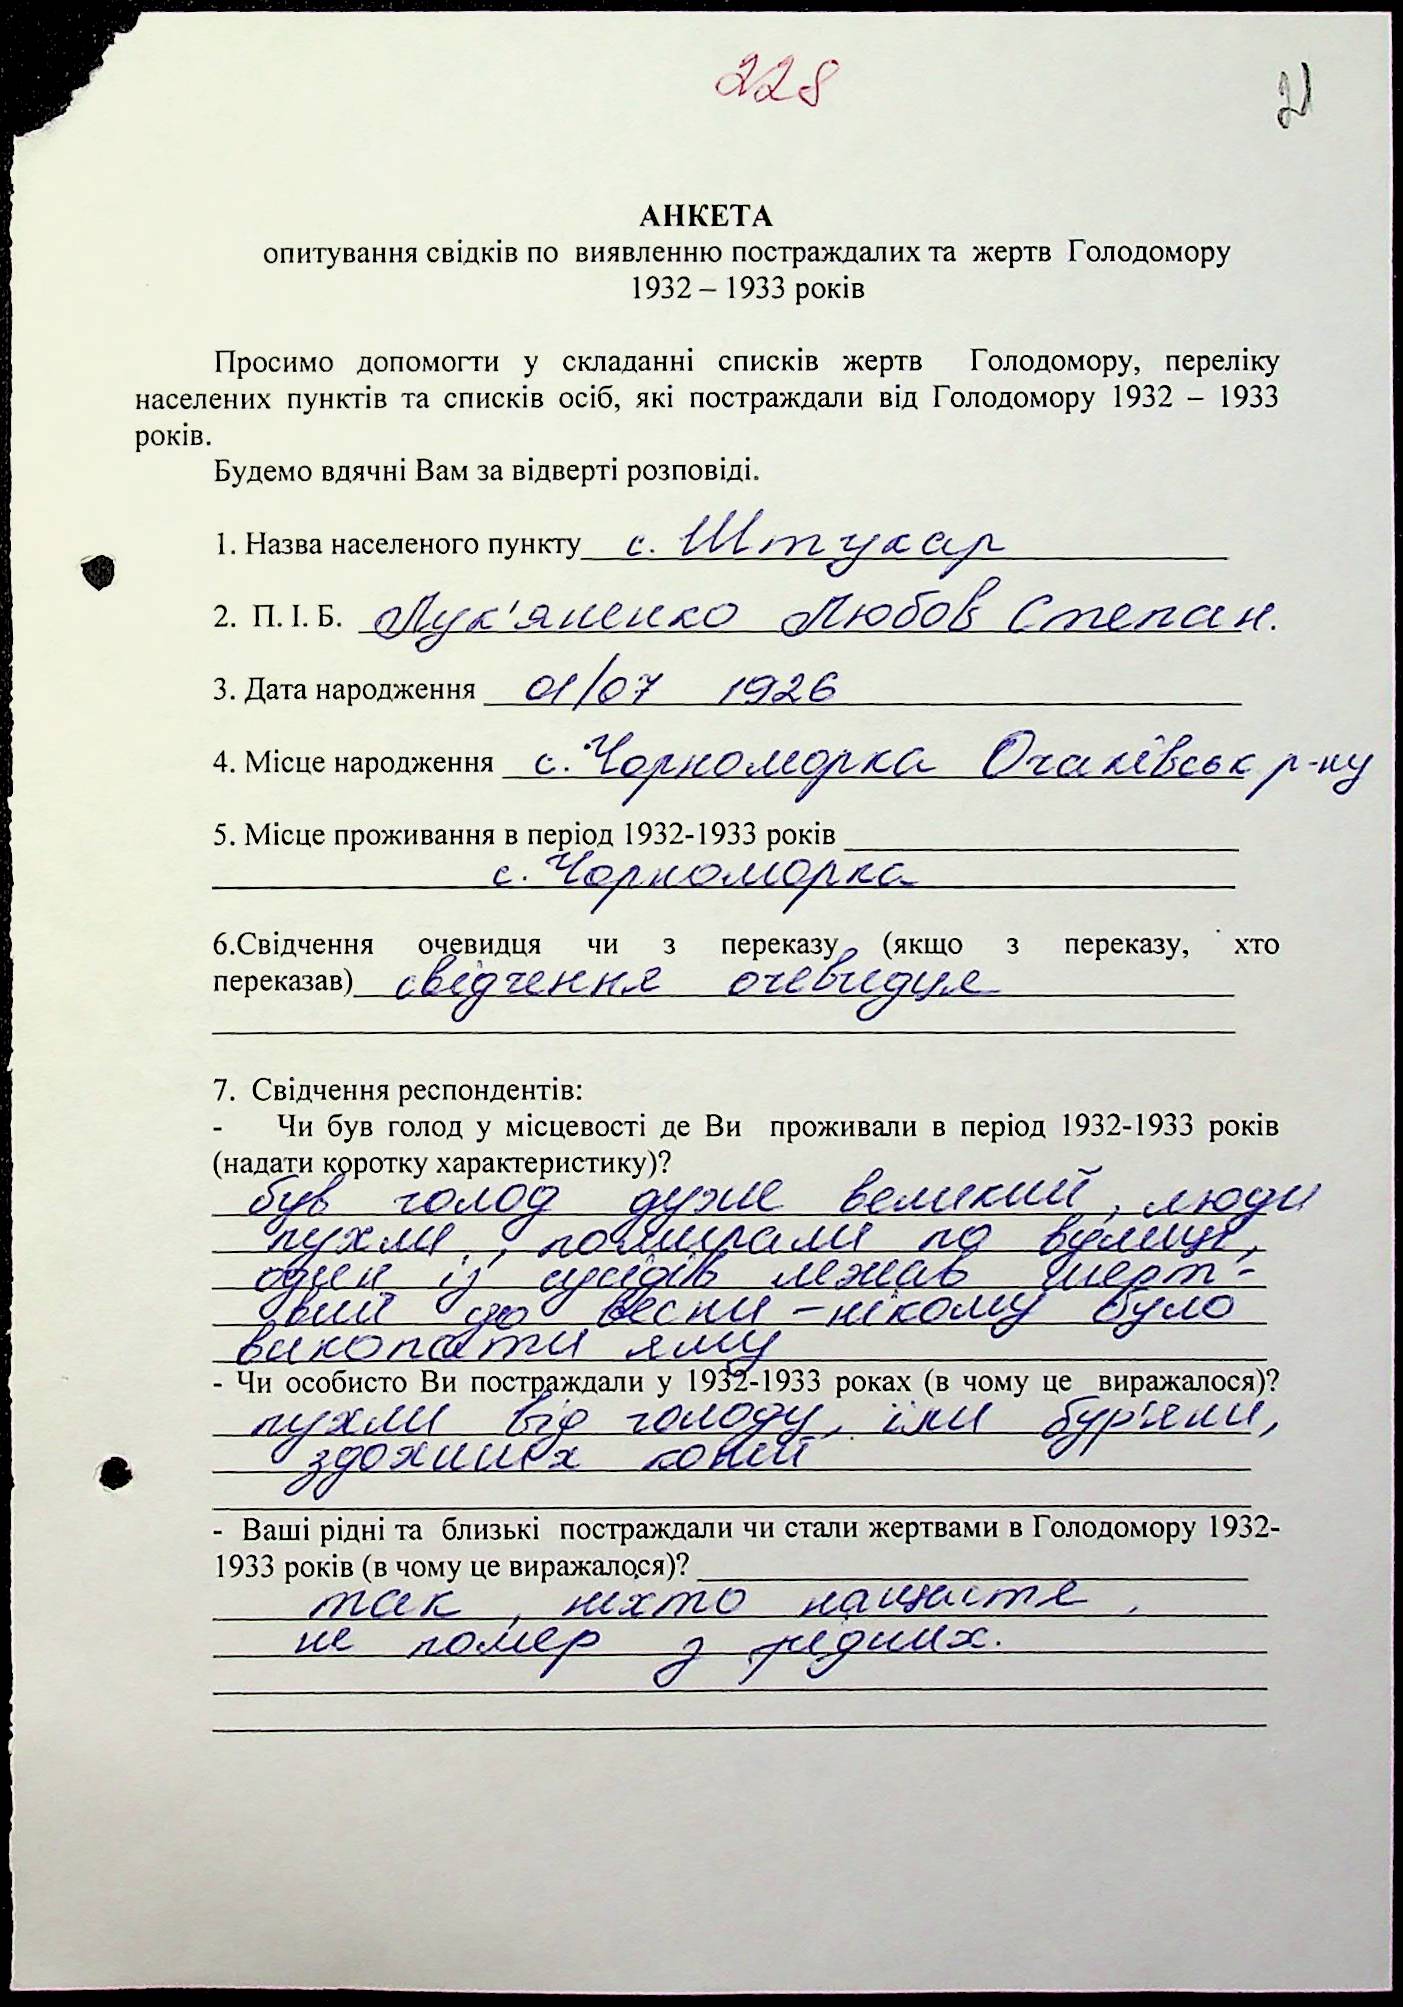 228
21
АНКЕТА
опитування свідків по виявленню постраждалих та жертв Голодомору
1932 – 1933 років
Просимо допомогти у складанні списків жертв Голодомору, переліку
населених пунктів та списків осіб, які постраждали від Голодомору 1932 – 1933
років.
Будемо вдячні Вам за відверті розповіді.
1. Назва населеного пункту с. Штукар
2. П. І. Б. Лук'яненко Любов Степан.
3. Дата народження 01/07 1926
4. Місце народження с. Чорноморка Очаківськ р-ну
5. Місце проживання в період 1932-1933 років
с. Чорноморка
6.Свідчення очевидця чи з переказу (якщо з переказу, хто
переказав) свідчення очевидця
7. Свідчення респондентів:
- Чи був голод у місцевості де Ви проживали в період 1932-1933 років
(надати коротку характеристику)?
був голод дуже великий, люди
пухли, помирали по вулиці,
один із сусідів лежав мерт-
вий до весни – нікому було
викопати яму
- Чи особисто Ви постраждали у 1932-1933 роках (в чому це виражалося)?
пухли від голоду, їли бур'яни,
здохших коней
- Ваші рідні та близькі постраждали чи стали жертвами в Голодомору 1932-
1933 років (в чому це виражалося)?
так, ніхто нащастя,
не помер з рідних.